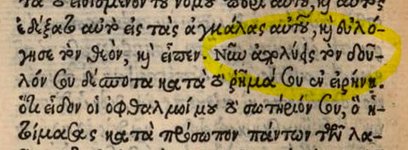 τὸ εἰθισμένον τοῦ νόμου περὶ αὐτοῦ, κỳ αὐτὸς
ἐδέξατο αὐτὸ εἰς τὰς ἀγκάλας αὑτοῦ, κỳ εὐλό-
γησε τὸν θεὸν, κỳ εἶπεν. Νῦν ἀπολύεις τὸν δοῦ-
λόν σου δέσποτα κατὰ τὸ ῥῆμά σου ἐν εἰρήνῃ.
ὅτι εἶδον οἱ ὀφθαλμοί μου τὸ σωτήριόν σου, ὃ ἡ-
τοίμασας κατὰ πρόσωπον πάντων τῶν λα-